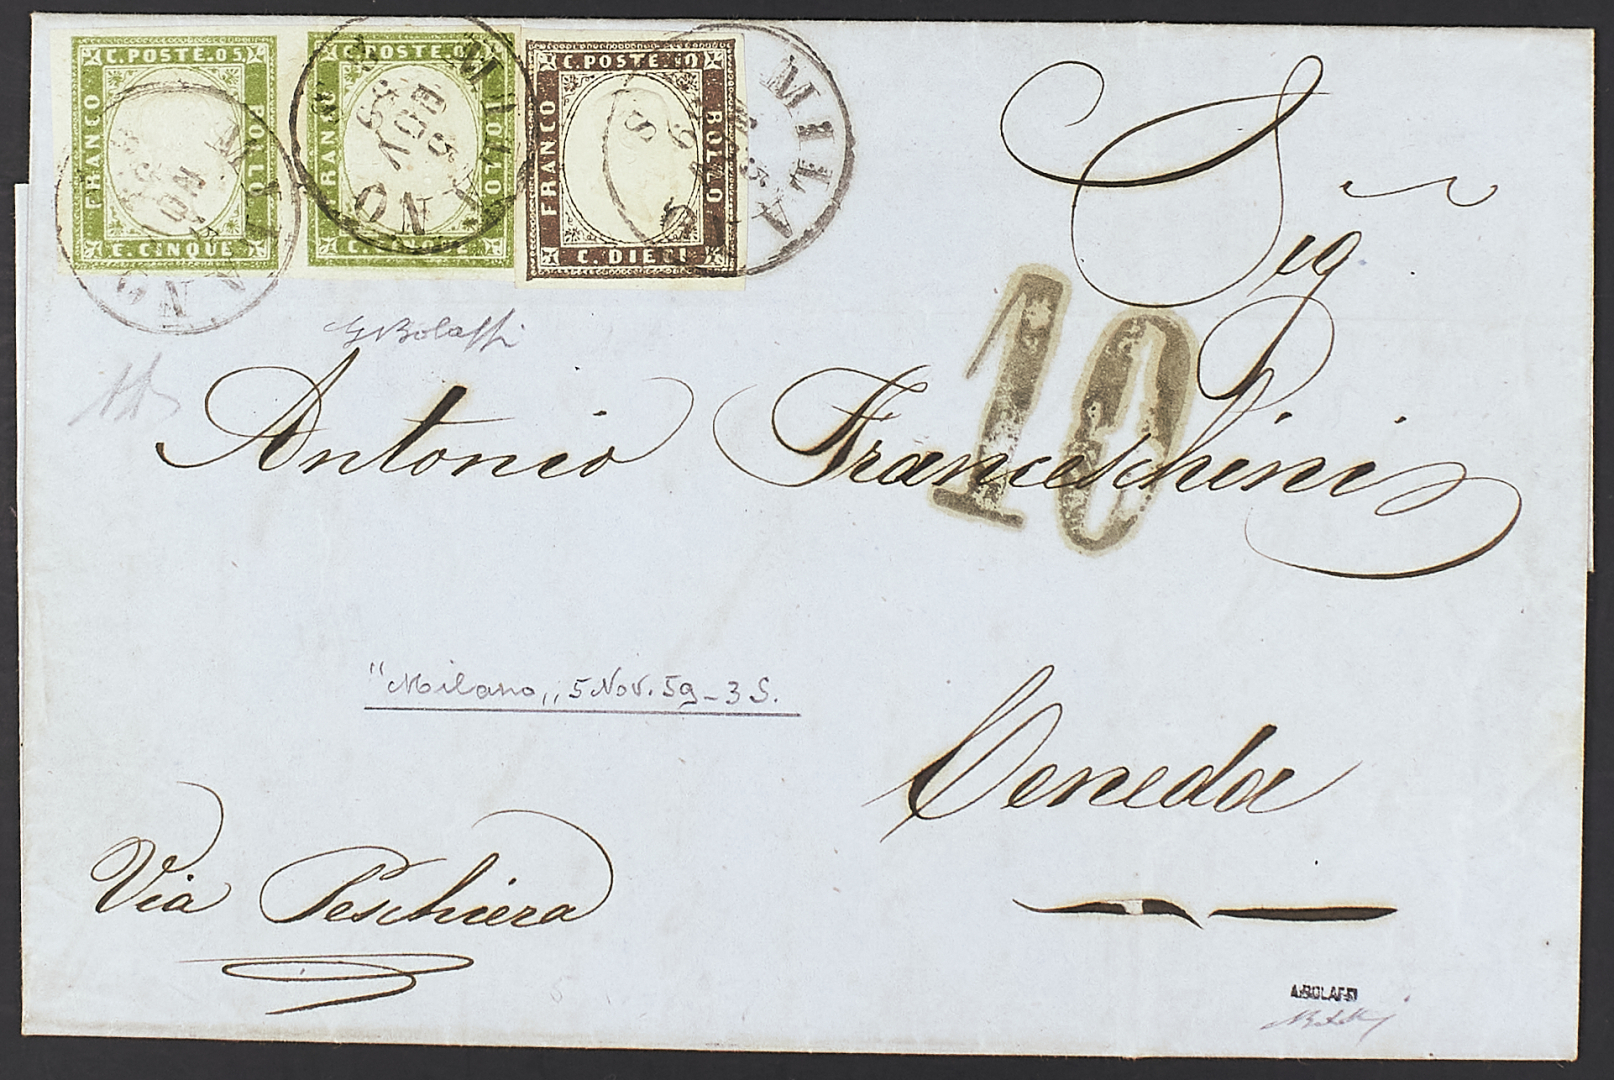 C. POSTE. 05
FRANCO
BOLLO
C. CINQUE
C. POSTE. 05
FRANCO
BOLLO
C. CINQUE
C. POSTE. 10
FRANCO
BOLLO
C. DIECI
MILANO
MILANO
MILANO
Sig
10
G Bolaffi
Antonio Franceschini
"Milano,, 5 Nov. 59 - 3 S.
Ceneda
Via Peschiera
A. BOLAFFI